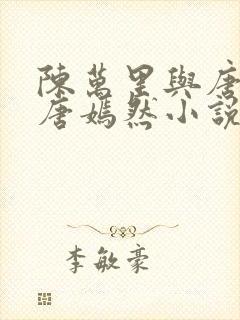 陳萬里與唐
唐嫣然小說
李敏豪